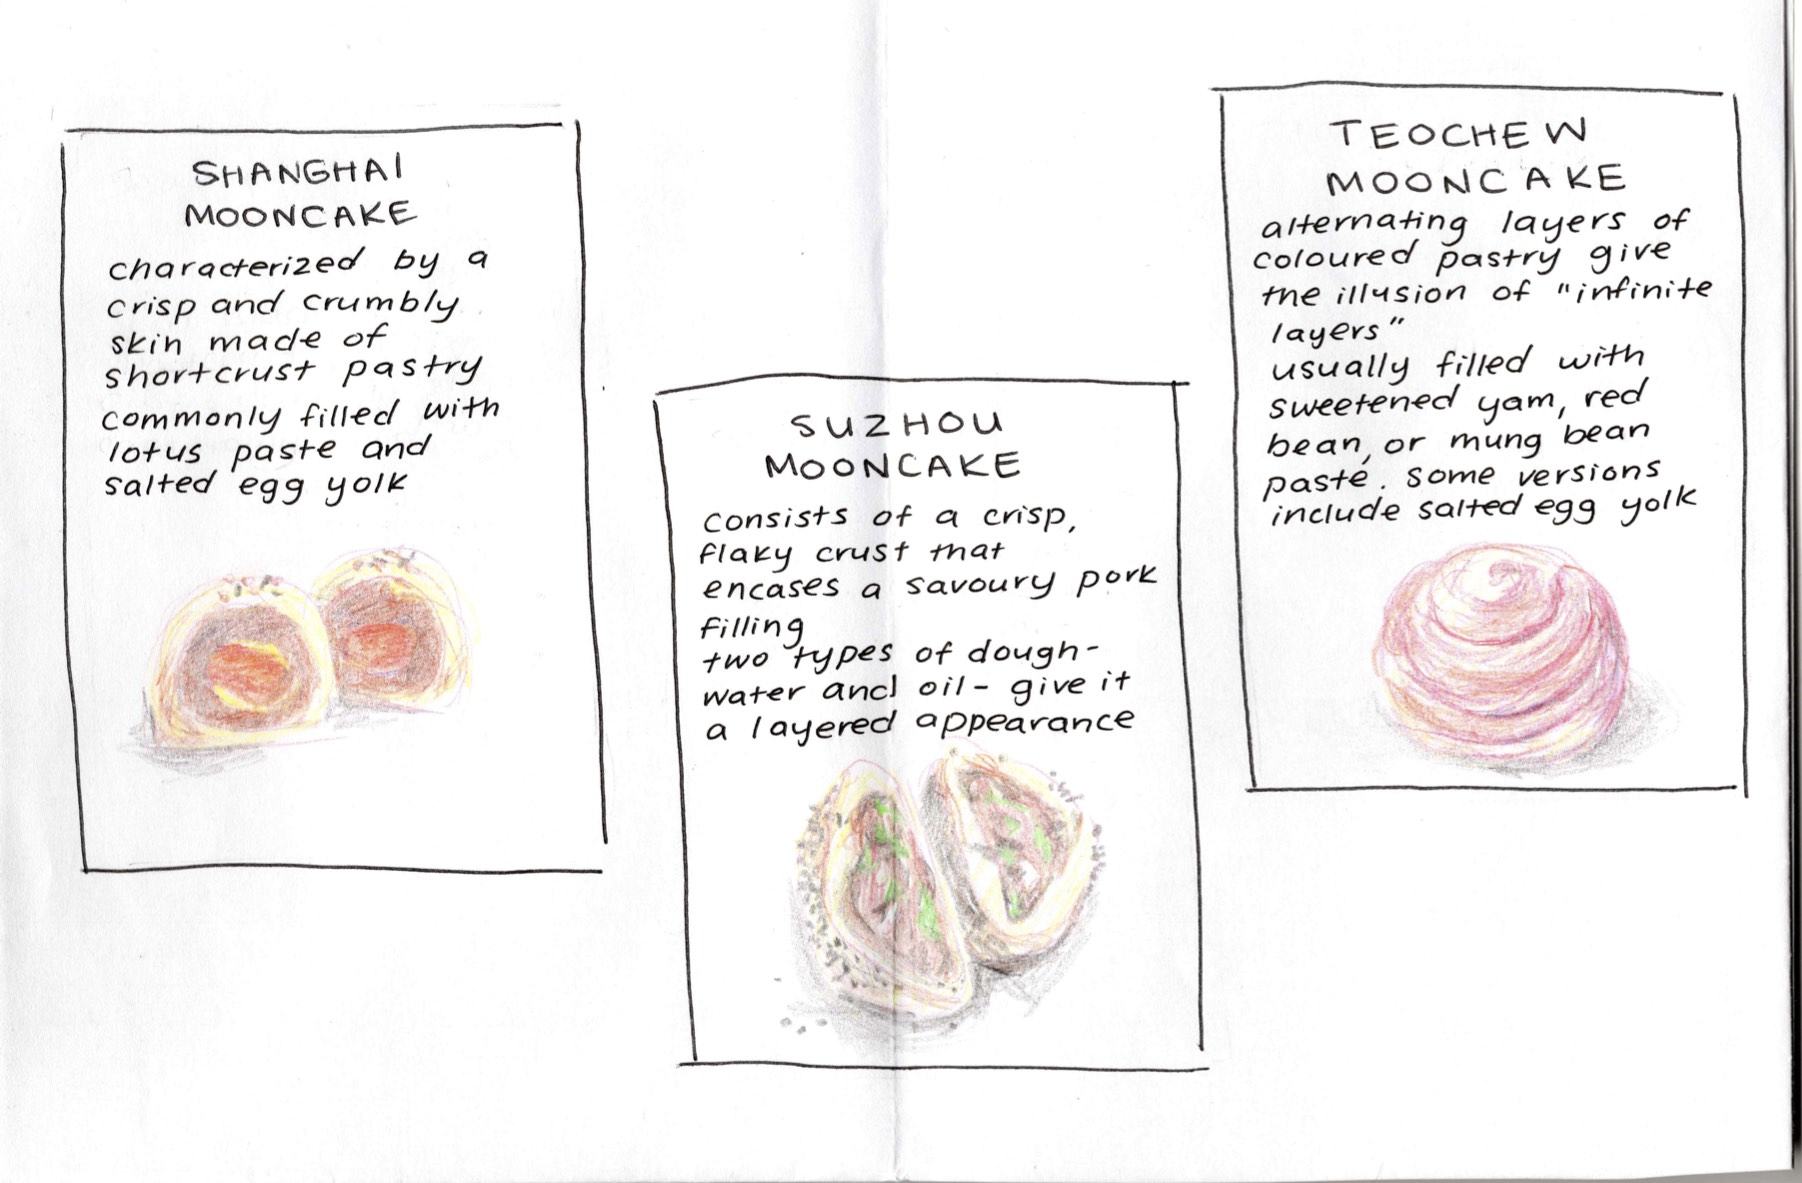 SHANGHAI
MOONCAKE
characterized by a
crisp and crumbly
skin made of
shortcrust pastry
commonly filled with
lotus paste and
salted egg yolk
SUZHOU
MOONCAKE
consists of a crisp,
flaky crust that
encases a savoury pork
filling
two types of dough-
water and oil- give it
a layered appearance
TEOCHEW
MOONCAKE
alternating layers of
coloured pastry give
the illusion of "infinite
layers"
usually filled with
sweetened yam, red
bean, or mung bean
paste. Some versions
include salted egg yolk